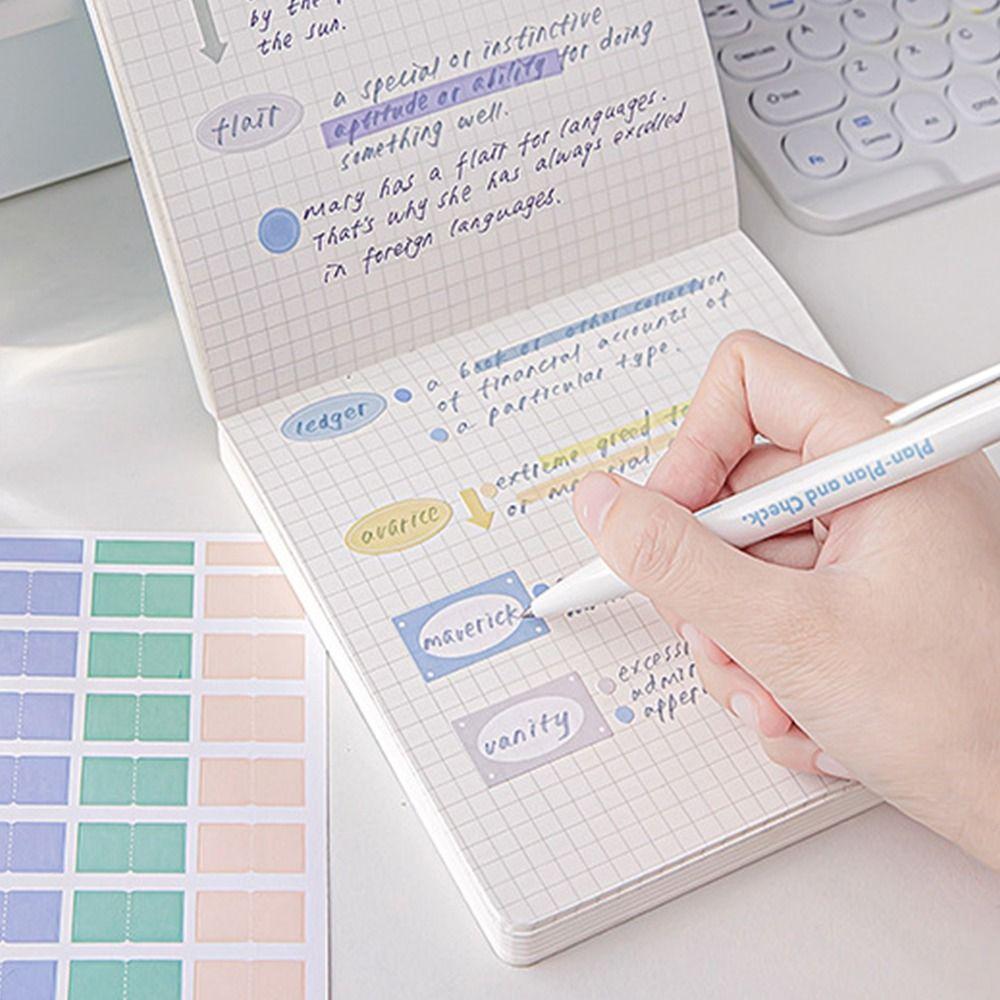 by the
the sun.
flair
a special or instinctive
aptitude or ability for doing
something well.
Mary has a flair for languages.
That's why she has always excelled
in foreign languages.
ledger
a book or other collection
of financial accounts of
a particular type.
avarice
extreme greed
or
maverick
vanity
Plan-Plan and Check.
Shift
A
Z
X
C
Fn
Alt